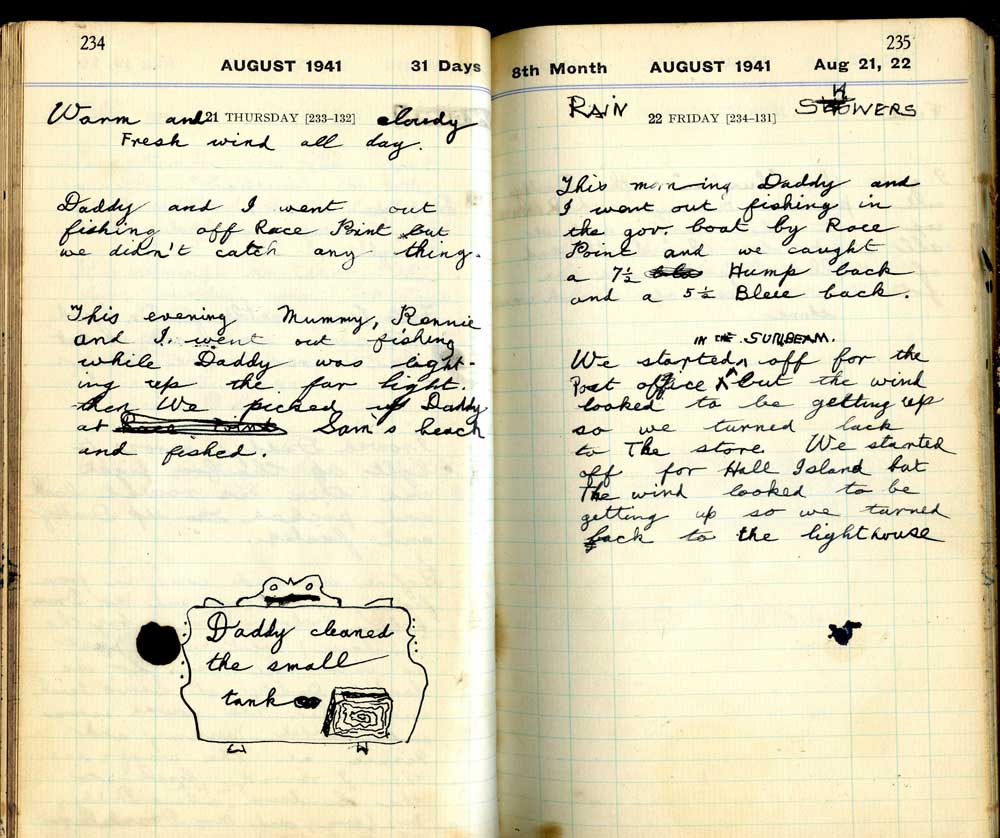 234
AUGUST 1941 31 Days
Warm and 21 THURSDAY [233–132] cloudy
Fresh wind all day.
Daddy and I went out
fishing off Race Point but
we didn't catch any thing.
This evening Mummy, Rennie
and I. went out fishing
while Daddy was light-
ing up the far light.
then We picked up Daddy
at Race Point Sam's beach
and fished.
Daddy cleaned
the small
tank
235
8th Month AUGUST 1941 Aug 21, 22
RAIN 22 FRIDAY [234–131] SHOWERS
This morning Daddy and
I went out fishing in
the gov. boat by Race
Point and we caught
a 7½ Hump back
and a 5½ Blue back.
IN THE SUNBEAM.
We started off for the
Post office but the wind
looked to be getting up
so we turned back
to The store. We started
off for Hall Island but
The wind looked to be
getting up so we turned
back to the lighthouse